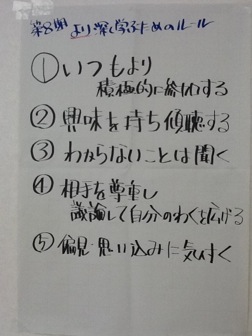 第8期 より深く学ぶためのルール
① いつもより
積極的に参加する
② 興味を持ち傾聴する
③ わからないことは聞く
④ 相手を尊重し
議論して自分のわくを広げる
⑤ 偏見・思い込みに気付く